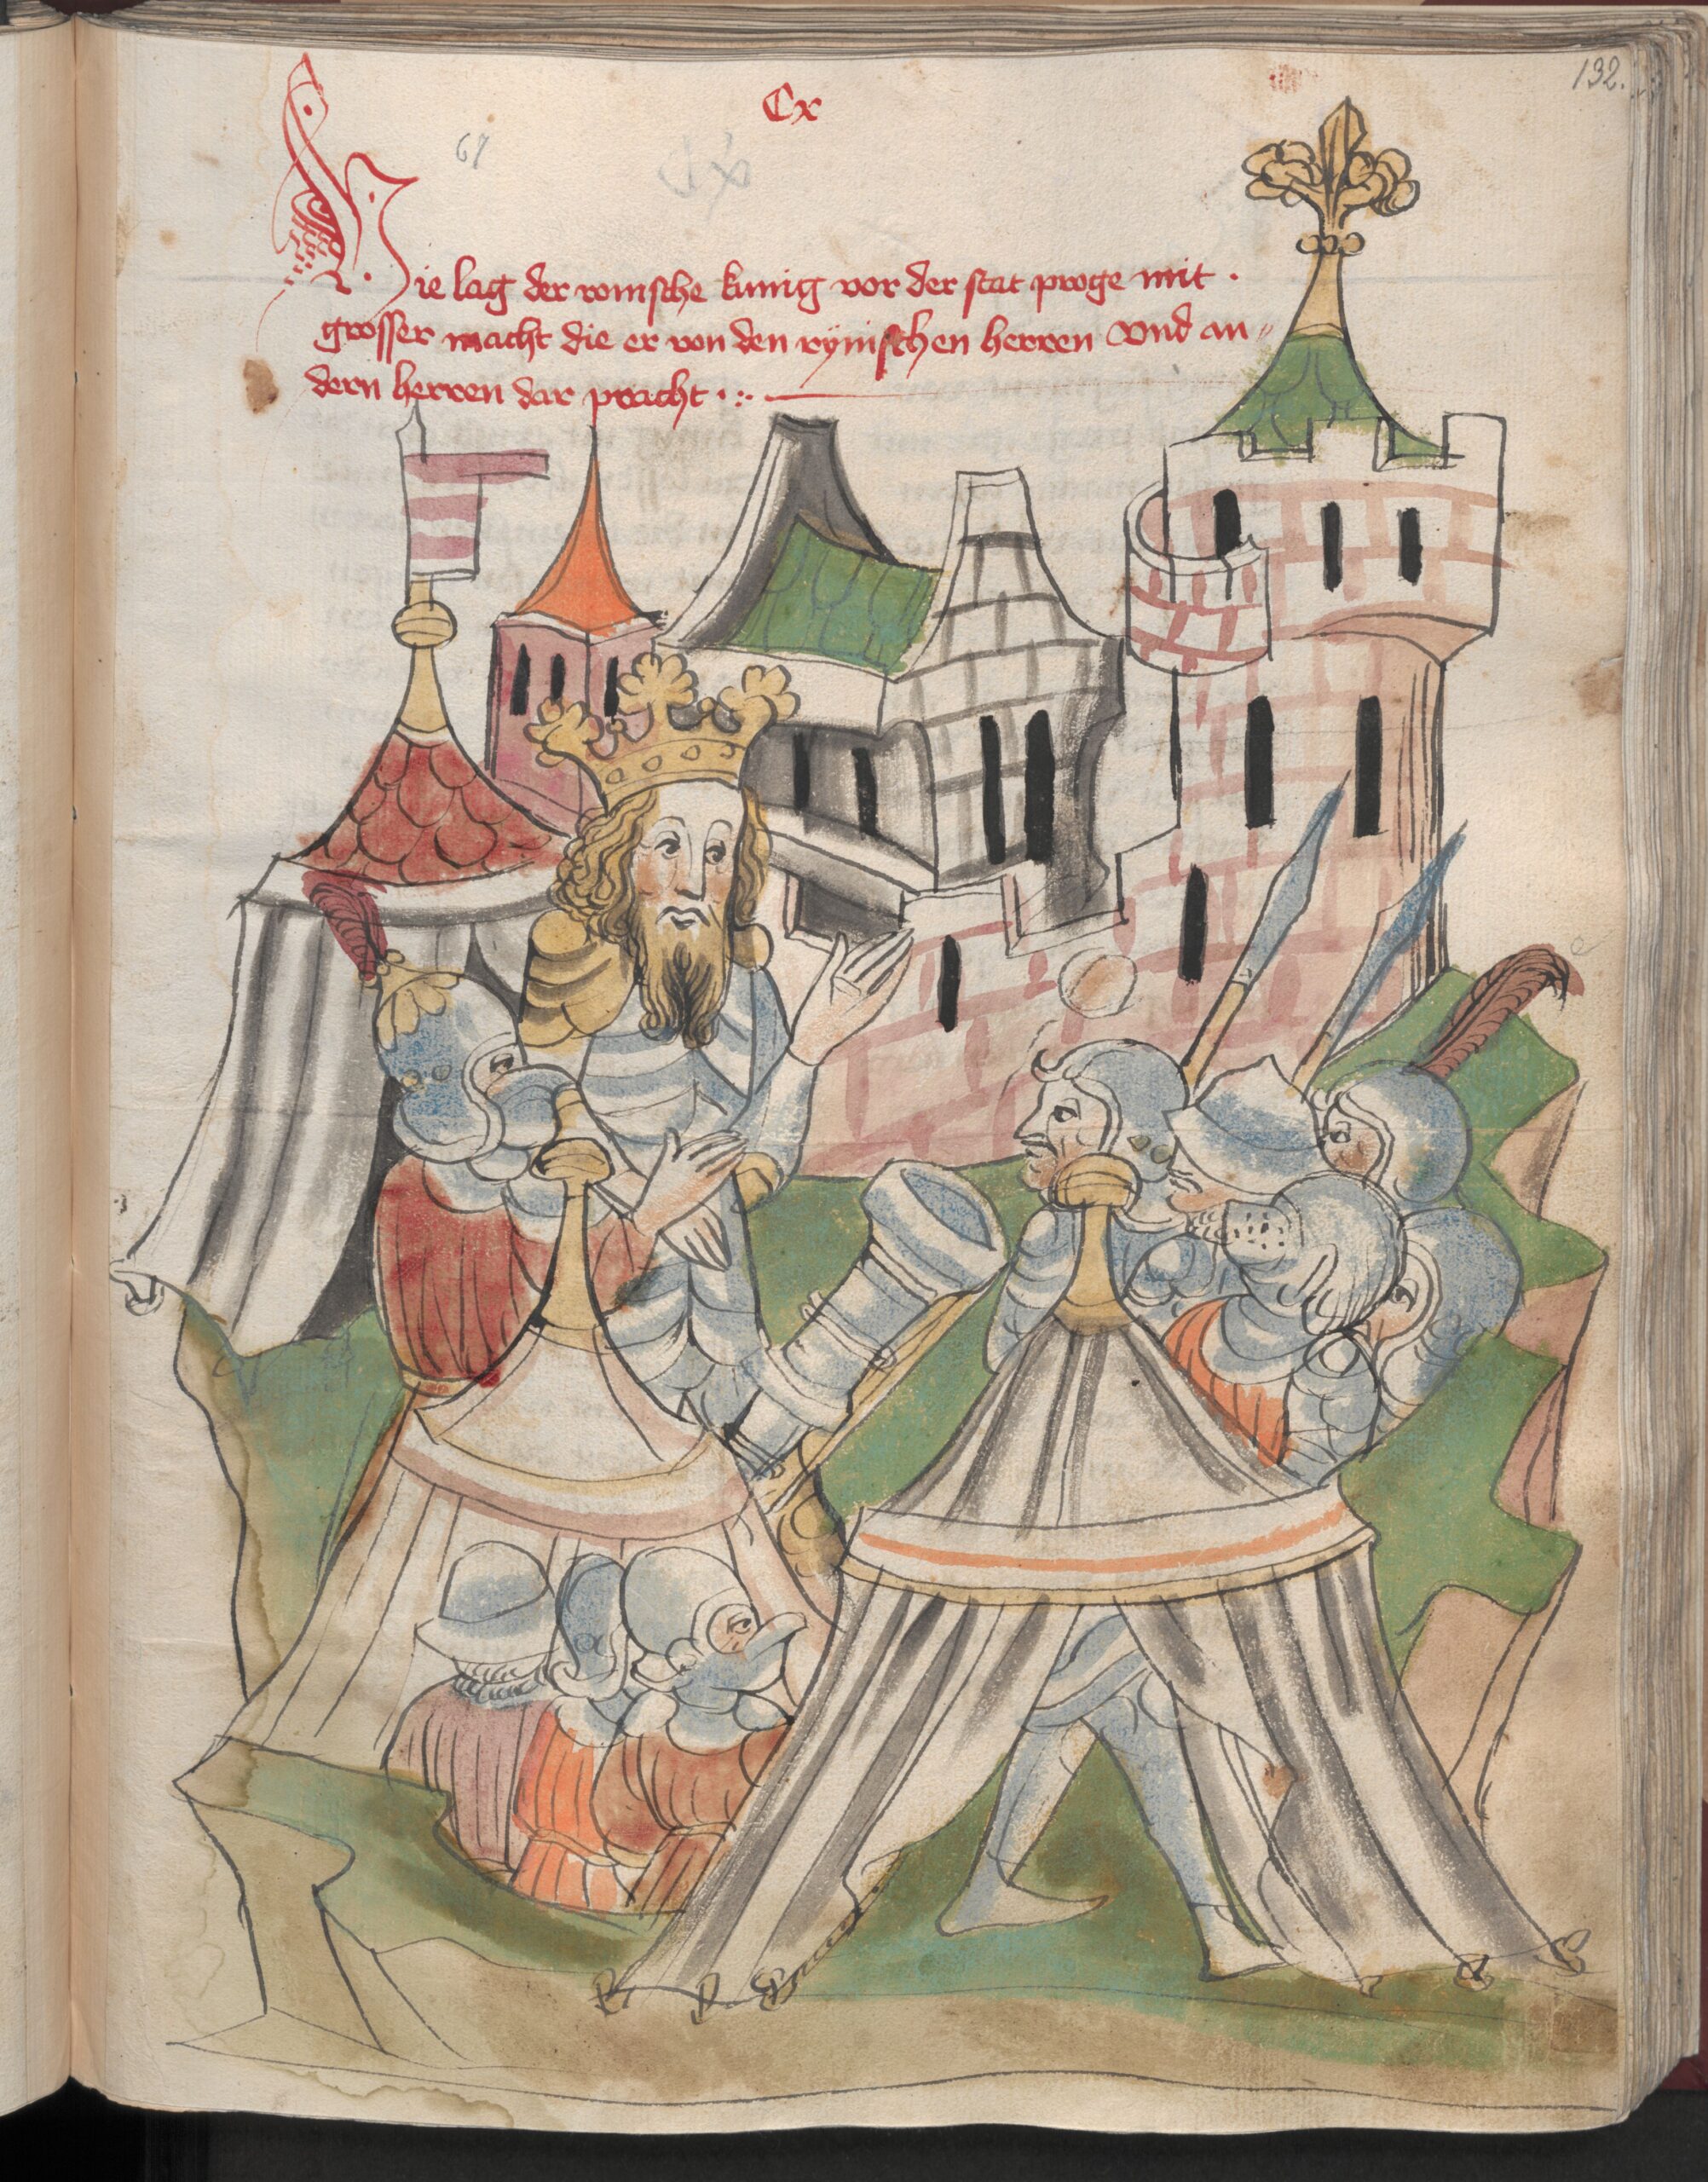 132.
Cx
67
Hie lag der romsche kunig vor der stat proge mit ·
grosser macht die er von den rÿnischen herren Vnd an〃
dern herren dar pracht